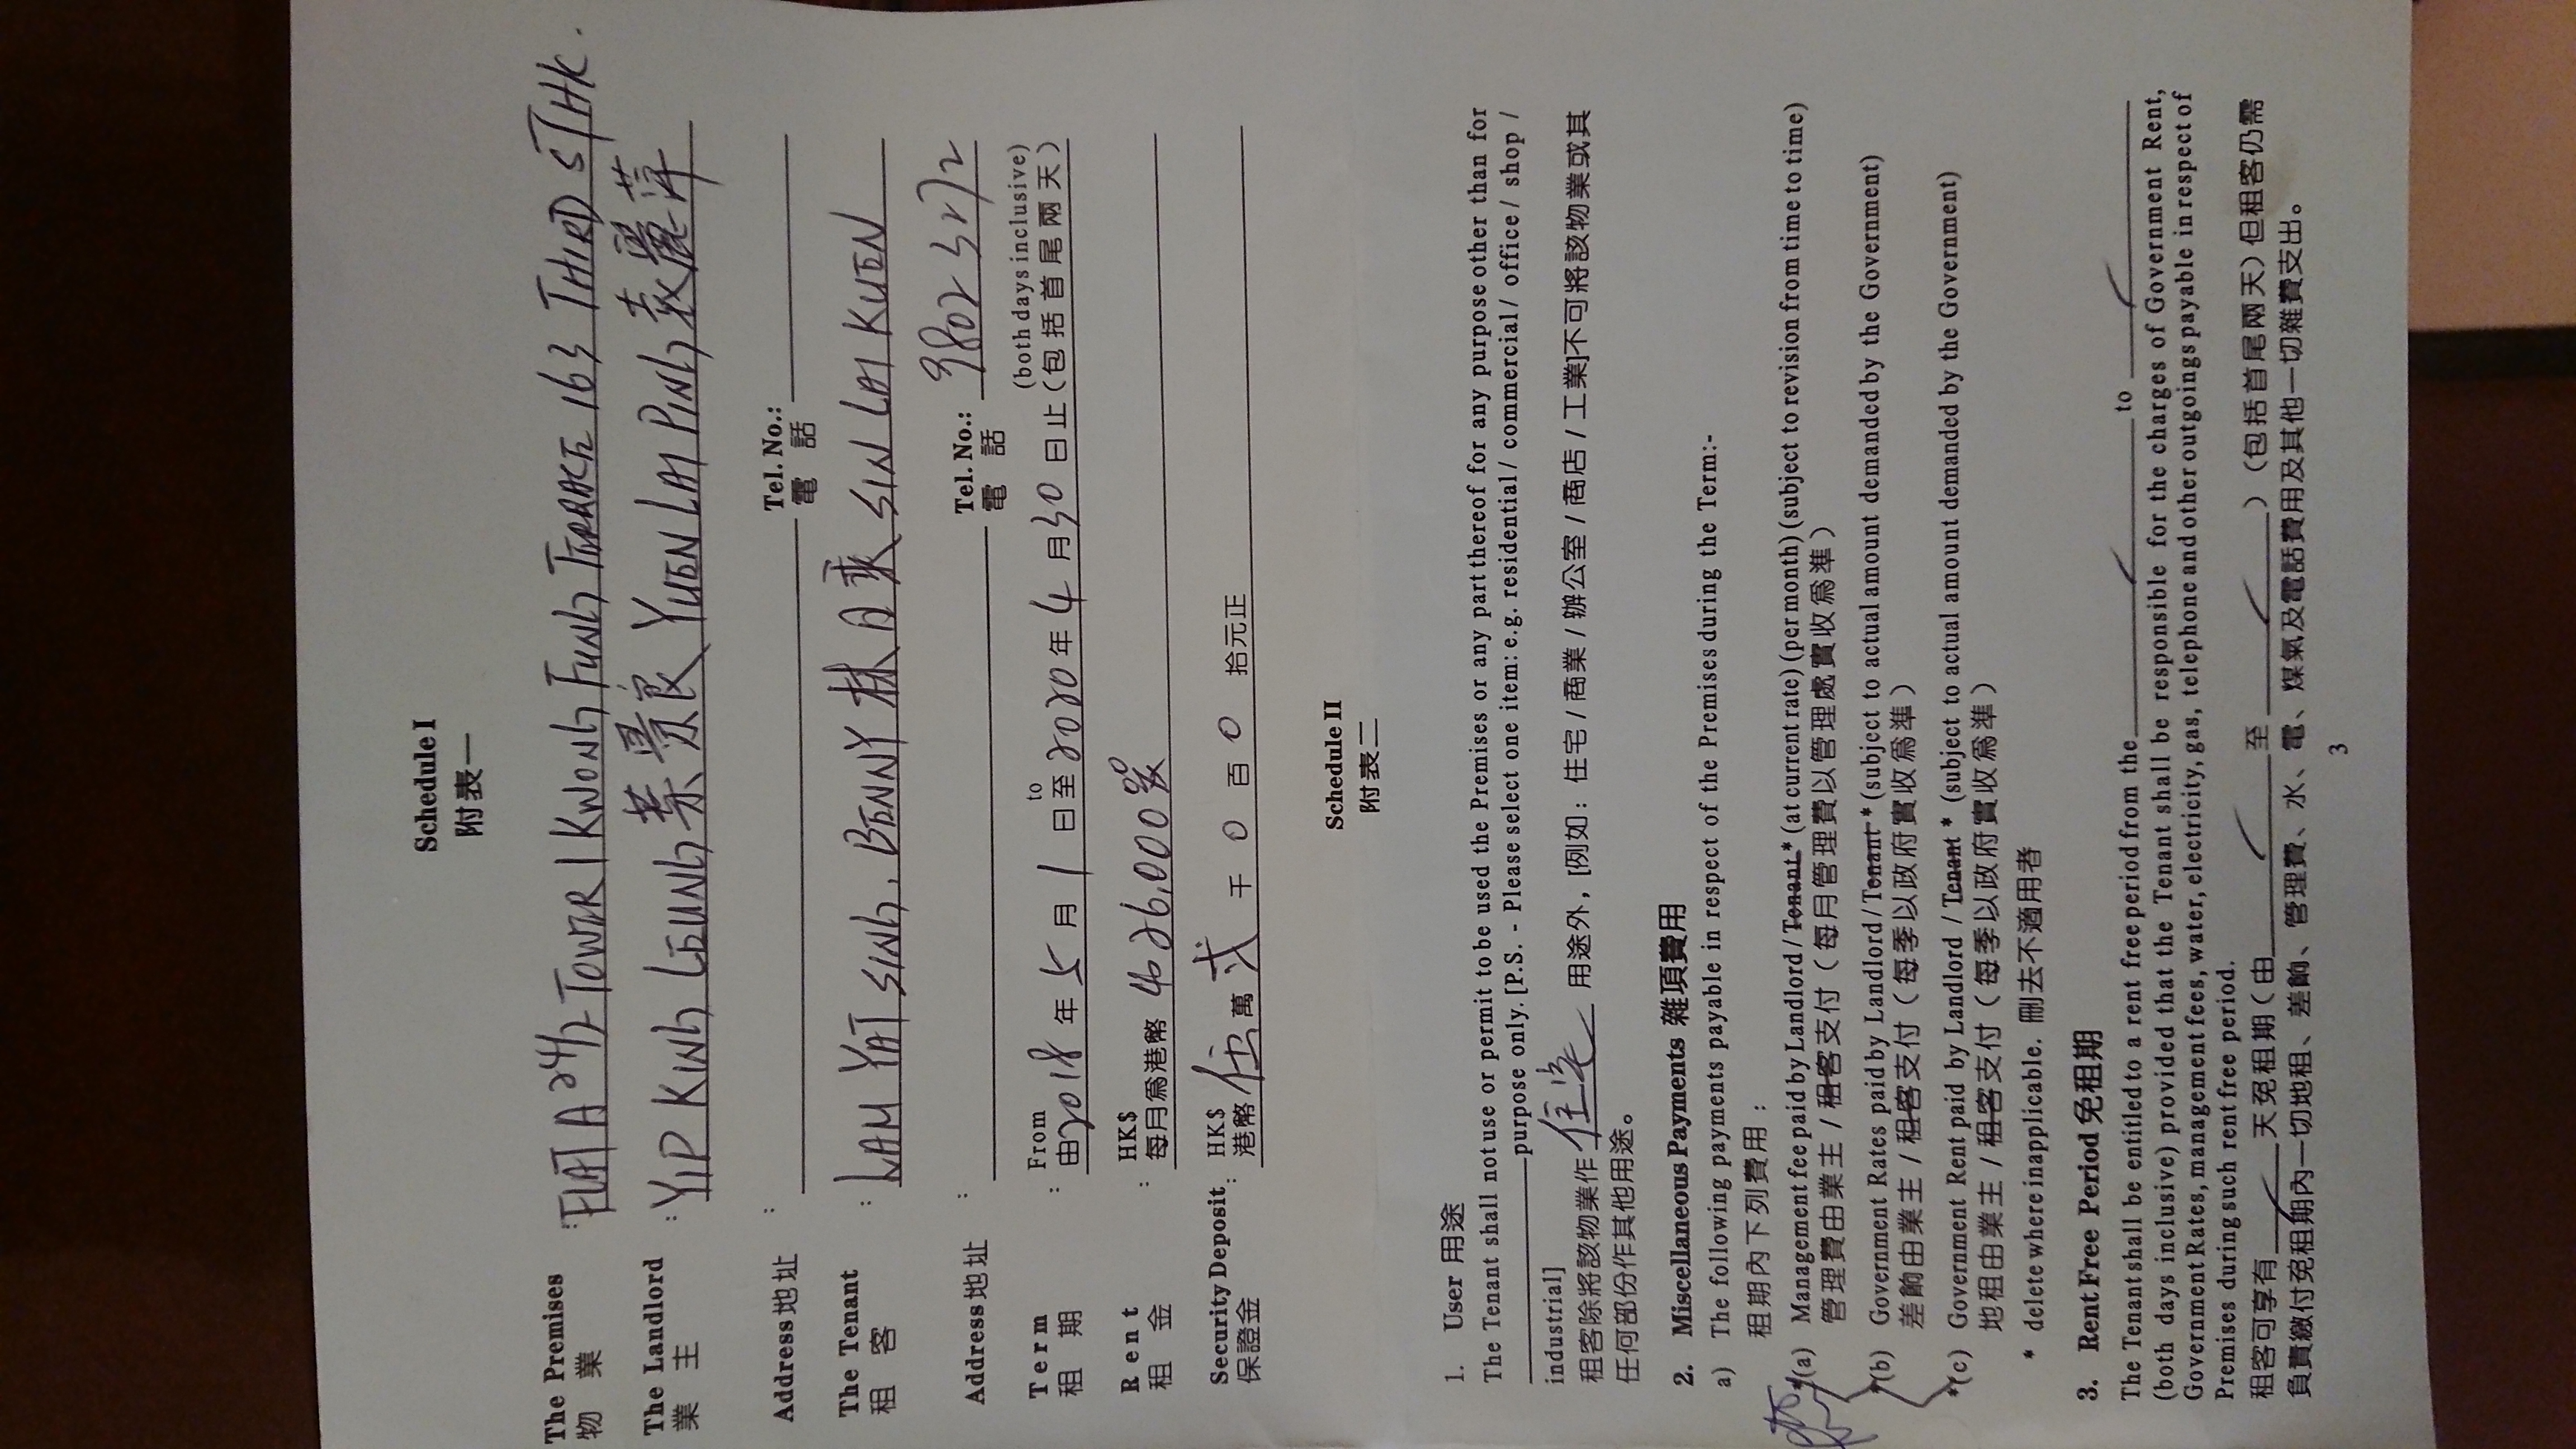 Schedule I
附表一
The Premises : FLAT A 24/F TOWER 1 KWONG FUNG TERRACE 163 THIRD ST HK.
物 業
The Landlord : YIP KING LEUNG 葉景良 YUEN LAI PING 袁麗萍
業 主
Address地址 : Tel. No.:
電 話
The Tenant : LAM YAT SING, BENNY 林日 SIN LAI KUEN
租 客
Address地址 : Tel. No.: 9802 3272
電 話
Term : From to (both days inclusive)
租 期 由2018年5月1日至2020年4月30日止(包括首尾兩天)
Rent : HK$
租 金 每月為港幣 26,000
Security Deposit : HK$
保證金 港幣 伍 萬 弍 千 0 百 0 拾元正
Schedule II
附表二
1. User 用途
The Tenant shall not use or permit to be used the Premises or any part thereof for any purpose other than for
purpose only. [P.S. - Please select one item: e.g. residential / commercial / office / shop /
industrial]
租客除將該物業作 住宅 用途外，[例如：住宅 / 商業 / 辦公室 / 商店 / 工業]不可將該物業或其
任何部份作其他用途。
2. Miscellaneous Payments 雜項費用
a) The following payments payable in respect of the Premises during the Term:-
租期內下列費用：
*(a) Management fee paid by Landlord / Tenant * (at current rate) (per month) (subject to revision from time to time)
管理費由業主 / 租客支付（每月管理費以管理處實收為準）
*(b) Government Rates paid by Landlord / Tenant * (subject to actual amount demanded by the Government)
差餉由業主 / 租客支付（每季以政府實收為準）
*(c) Government Rent paid by Landlord / Tenant * (subject to actual amount demanded by the Government)
地租由業主 / 租客支付（每季以政府實收為準）
* delete where inapplicable. 刪去不適用者
3. Rent Free Period 免租期
The Tenant shall be entitled to a rent free period from the to
(both days inclusive) provided that the Tenant shall be responsible for the charges of Government Rent,
Government Rates, management fees, water, electricity, gas, telephone and other outgoings payable in respect of
Premises during such rent free period.
租客可享有 天免租期（由 至 ）（包括首尾兩天）但租客仍需
負責繳付免租期內一切地租、差餉、管理費、水、電、煤氣及電話費用及其他一切雜費支出。
3